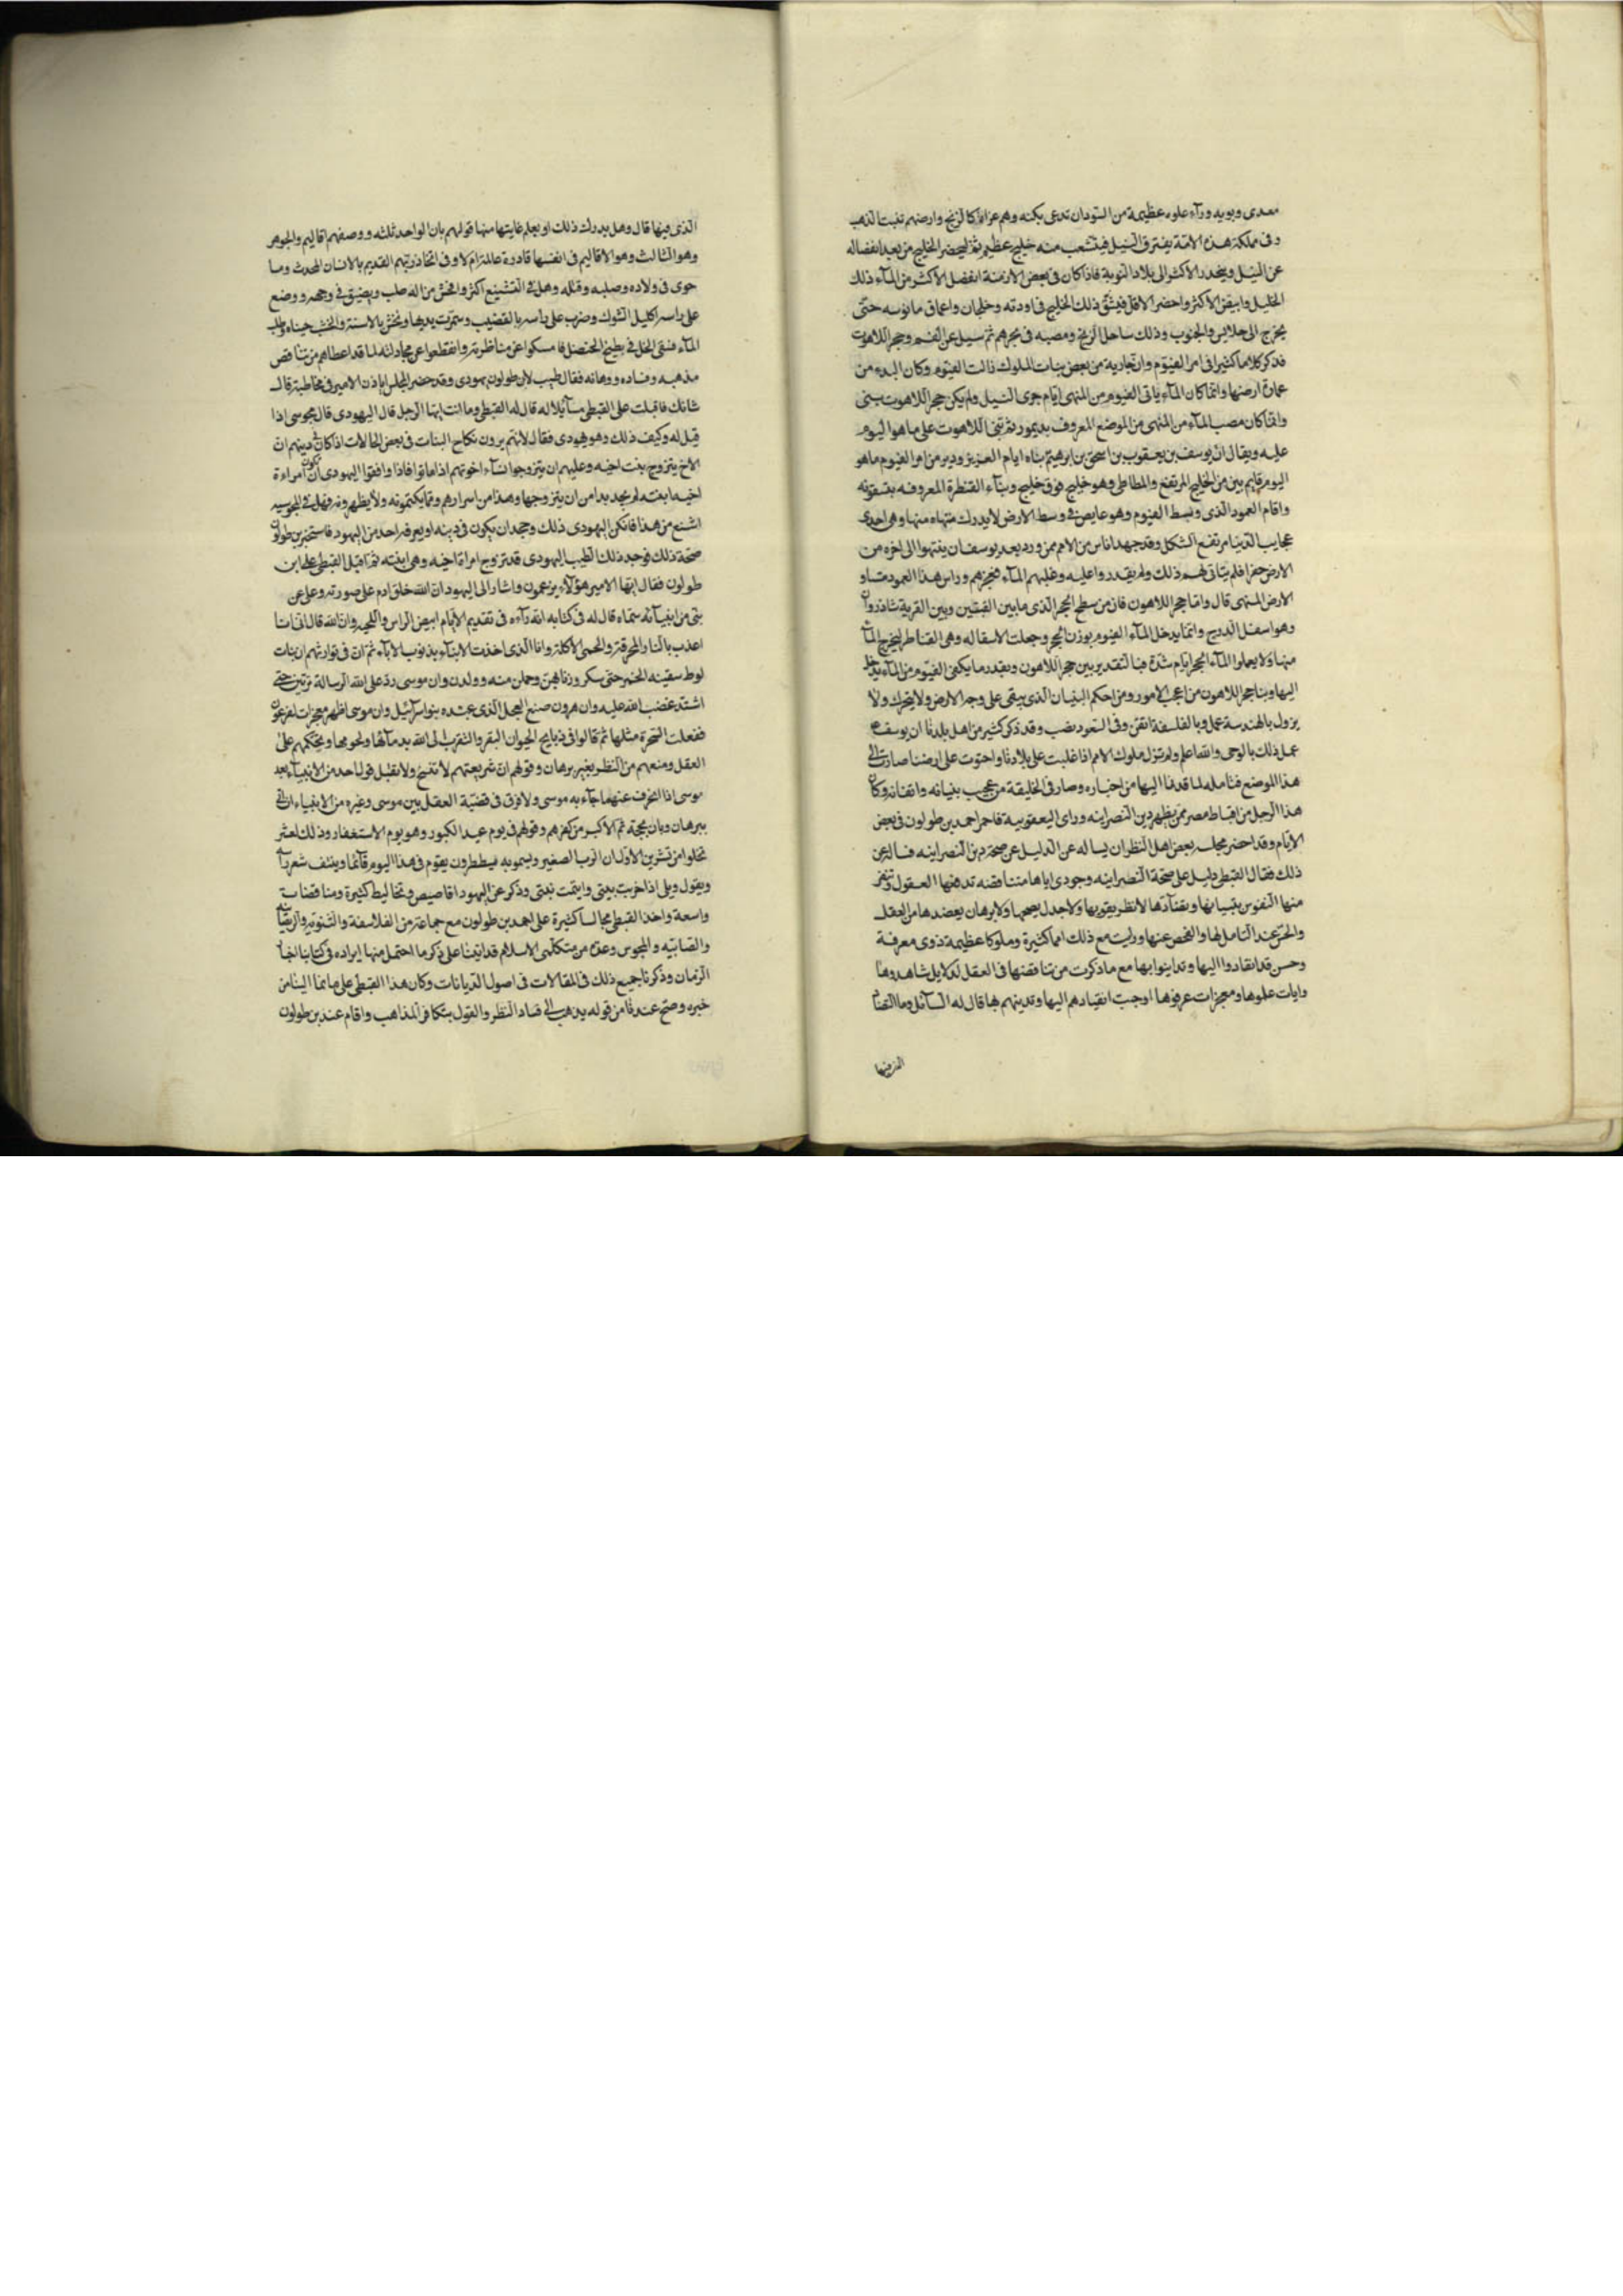 معدى وبوبه وورآء علوه عظيمة من السودان تدعى بكنه وهم عراة كالزنج وارضهم تنبت الذهب
وفى مملكة هذه الامّة يفترق النيل فيتشعب منه خليج عظيم ثمّ يخضر الخليج من بعد انفصاله
عن النيل وينحدر الاكثر الى بلاد النوبة فاذا كان فى بعض الازمنة انفصل الاكثر من المآء ذلك
الخليج وابيض الاكثر واخضر الاقل فيشق ذلك الخليج فى اودته وخلجان واعماق مانوسه حتّى
يخرج الى جلاليس والجنوب وذلك ساحل الزنج ومصبه فى بحرهم ثم سئل عن الفيوم وحجر اللاهون
فذكر كلاما كثيرا فى امر الفيّوم وان جارية من بعض بنات الملوك نزلت الفيّوم وكان البدء من
عمارة ارضها وانّما كان المآء ياتى الفيوم من المنهى ايّام جرى النيل ولم يكن حجر اللاهون بنى
وانّما كان مصب المآء من المنهى من الموضع المعروف بديمور ثم بنى اللاهون على ما هو اليوم
عليه ويقال انّ يوسف بن يعقوب بن اسحق بن ابرهيم بناه ايام العزيز ودبر من امر الفيوم ما هو
اليوم قايم بين من الخليج المرتفع والمطاطى وهو خليج فوق خليج وبنآء القنطرة المعروفه بسفونه
واقام العمود الذى وسط الفيوم وهو غايص فى وسط الارض لا يدرك منتهاه منها وهى احدى
عجايب الدّنيا مرتفع الشكل وقد جهد اناس من الامم ممن ورد بعد يوسف ان ينتهوا الى اخره من
الارض حفرا فلم يتاتى لهم ذلك ولم يقدروا عليه وغلبهم المآء فعجزهم وراس هذا العمود متساو
الارض المنهى قال وامّا حجر اللاهون فان من سطح الحجر الذى ما بين القبتين وبين القرية شاذروان
وهو اسفل الدرج وانما يدخل المآء الفيوم بوزن الحجر وجعلت الاسقاله وهى القناطر ليخرج المآء
منها ولا يعلوا المآء الحجر ايّام شدّة فبالتقدير بين حجر اللاهون وبقدر ما يكفى الفيّوم من المآء يدخل
اليها وبنا حجر اللاهون من اعجب الامور ومن احكم البنيان الذى يبقى على وجه الارض ولا يتحرك ولا
يزول بالهندسة عمل وبالفلسفة اتقن وفى السعود نصب وقد ذكر كثير من اهل بلدنا ان يوسف
عمل ذلك بالوحى والله اعلم ولم تزل ملوك الامم اذا غلبت على بلادنا واحتوت على ارضنا صارت الى
هذا الموضع فتامله لما قد نما اليها من اخباره وصار فى الخليقة من عجيب بنيانه واتقانه وكان
هذا الرجل من اقباط مصر ممّن يظهر دين النصرانيه وراى اليعقوبية فامر احمد بن طولون فى بعض
الايّام وقد احضر مجلسه بعض اهل النظر ان يساله عن الدليل عن صحة دين النصرانيه فساله عن
ذلك فقال القبطى دليل على صحة النصرانيه وجودى اياها متناقضه تدفعها العقول وتنفر
منها النفوس بتبيانها وتضآدّها لا نظر يقويها ولا جدل يصححها ولا برهان يعضدها من العقل
والحسّ عند التامل لها والفحص عنها ورايت مع ذلك امما كثيرة وملوكا عظيمة ذوى معرفة
وحسن قد انقادوا اليها وتداينوا بها مع ما ذكرت من تناقضها فى العقل لدلايل شاهدوها
وايات علموها ومعجزات عرفوها اوجبت انقيادهم اليها وتدينهم بها قال له السآئل وما التضاد
الذى فيها
الّذى فيها قال وهل يدرك ذلك او يعلم غايتها منها قولهم بان الواحد ثلثه ووصفهم اقاليم والجوهر
وهو الثالث وهو الاقاليم فى انفسها قادرة عالمة ام لا وفى اتحاذ ربّهم القديم بالانسان المحدث وما
جرى فى ولاده وصلبه وقتله وهل فى التشنيع اكثر وافحش من اله صلب وبصق فى وجهه ووضع
على راسه اكليل الشوك وضرب على راسه بالقضيب وسمّرت يديها ونخش بالاسنة والخشب جنباه وطلب
المآء فسقى الخل فى بطيخ الحنضل فامسكوا عن مناظرته وانقطعوا عن مجادلته لما قد اعطاهم من تناقض
مذهبه وفساده ووهانه فقال طبيب لابن طولون يهودى وقد حضر المجلس اياذن الامير فى مخاطبته قال
شانك فاقبلت على القبطى مسآئلا له قال له القبطى وما انت ايّها الرجل قال اليهودى قال مجوسى اذا
قيل له وكيف ذلك وهو يهودى فقال لانّهم يرون نكاح البنات فى بعض الحالات اذ كان فى دينهم انّ
الاخ يتزوج بنت اخيه وعليهم ان يتزوجوا نسآء اخوتهم اذا ماتوا فاذا وافقوا اليهودى ان تكون امراءة
اخيه ابنته لم يجد بدا من ان يتزوجها وهذا من اسرارهم وممّا يكتمونه ولا يظهرونه فهل فى المجوسيه
اشنع من هذا فانكر اليهودى ذلك وجحد ان يكون فى دينه او يعرفه احد من اليهود فاستخبر بن طولون
صحّة ذلك فوجد ذلك الطبيب اليهودى قد تزوج امراة اخيه وهى ابنته ثمّ اقبل القبطى على ابن
طولون فقال ايّها الامير هؤلآء يزعمون واشار الى اليهود انّ الله خلق ادم على صورته وعلى عن
بنى من انبيآئه سمّاه قال له فى كتابه انّه رآءه فى تقديم الايّام ابيض الراس واللّحيه وانّ الله قال انى انا
اعذب بالنار المحرقة والحمى الاكلة وانا الّذى اخذت الابنآء بذنوب الابآء ثمّ انّ فى توراتهم ان بنات
لوط سقينه الخمر حتى سكر وزنا بهنّ وحملن منه وولدن وان موسى ردّ على الله الرسالة مرّتين حتى
اشتدّ غضب الله عليه وان هرون صنع العجل الّذى عبده بنو اسرآئيل وان موسى اظهر معجزات لفرعون
ففعلت السّحرة مثلها ثم قالوا فى ذبايح الحيوان البقر والتقرب الى الله بدمآئها ولحومها وتحكمهم على
العقل ومنعهم من النظر بغير برهان وقولهم انّ شريعتهم لا تنسخ ولا تقبل قول احد من الانبيآء بعد
موسى اذا انحرف عنهم ما جآء به موسى ولا فرق فى قضيّة العقل بين موسى وغيره من الانبياء ان اتى
ببرهان وبان بحجّة ثم الاكبر من كفرهم وقولهم فى يوم عيد الكبور وهو يوم الاستغفار وذلك لعشر
تخلوا من تشرين الاوّل ان الرب الصغير ويسمونه ميططرون يقوم فى هذا اليوم قآئما وينتف شعر رآسه
ويقول ويلى اذا خربت بيتى وايتمت بنتى وذكر عن اليهود اقاصيص وتخاليط كثيرة ومناقضات
واسعة واخذ القبطى مجالسا كثيرة على احمد بن طولون مع جماعة من الفلاسفة والثنويّه والديصانيه
والصّابيّه والمجوس وعدّة من متكلّمى الاسلام قد اتينا على ذكر ما احتمل منها ايراده فى كتابنا اخبار
الزمان وذكرنا جميع ذلك فى المقالات فى اصول الدّيانات وكان هذا القبطى على ما نما الينا من
خبره وصحّ عندنا من قوله يذهب الى فساد النظر والقول بتكافر المذاهب واقام عند بن طولون